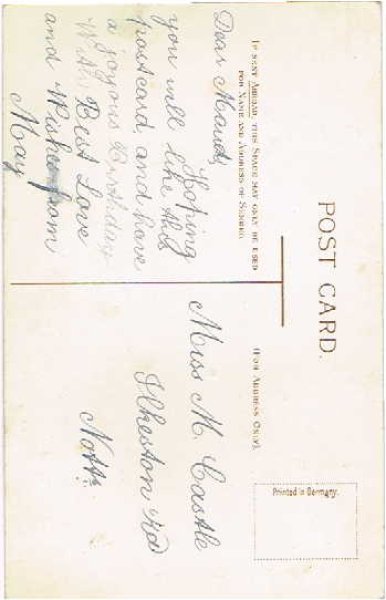 POST CARD.
IF SENT ABROAD, THIS SPACE MAY ONLY BE USED
FOR NAME AND ADDRESS OF SENDER.
(FOR ADDRESS ONLY).
Printed in Germany.
Dear Maud,
Hoping
you will like this
postcard, and have
a joyous Birthday
With Best Love
and Wishes from
May
Miss M. Castle
Ilkeston Rd
Notts.